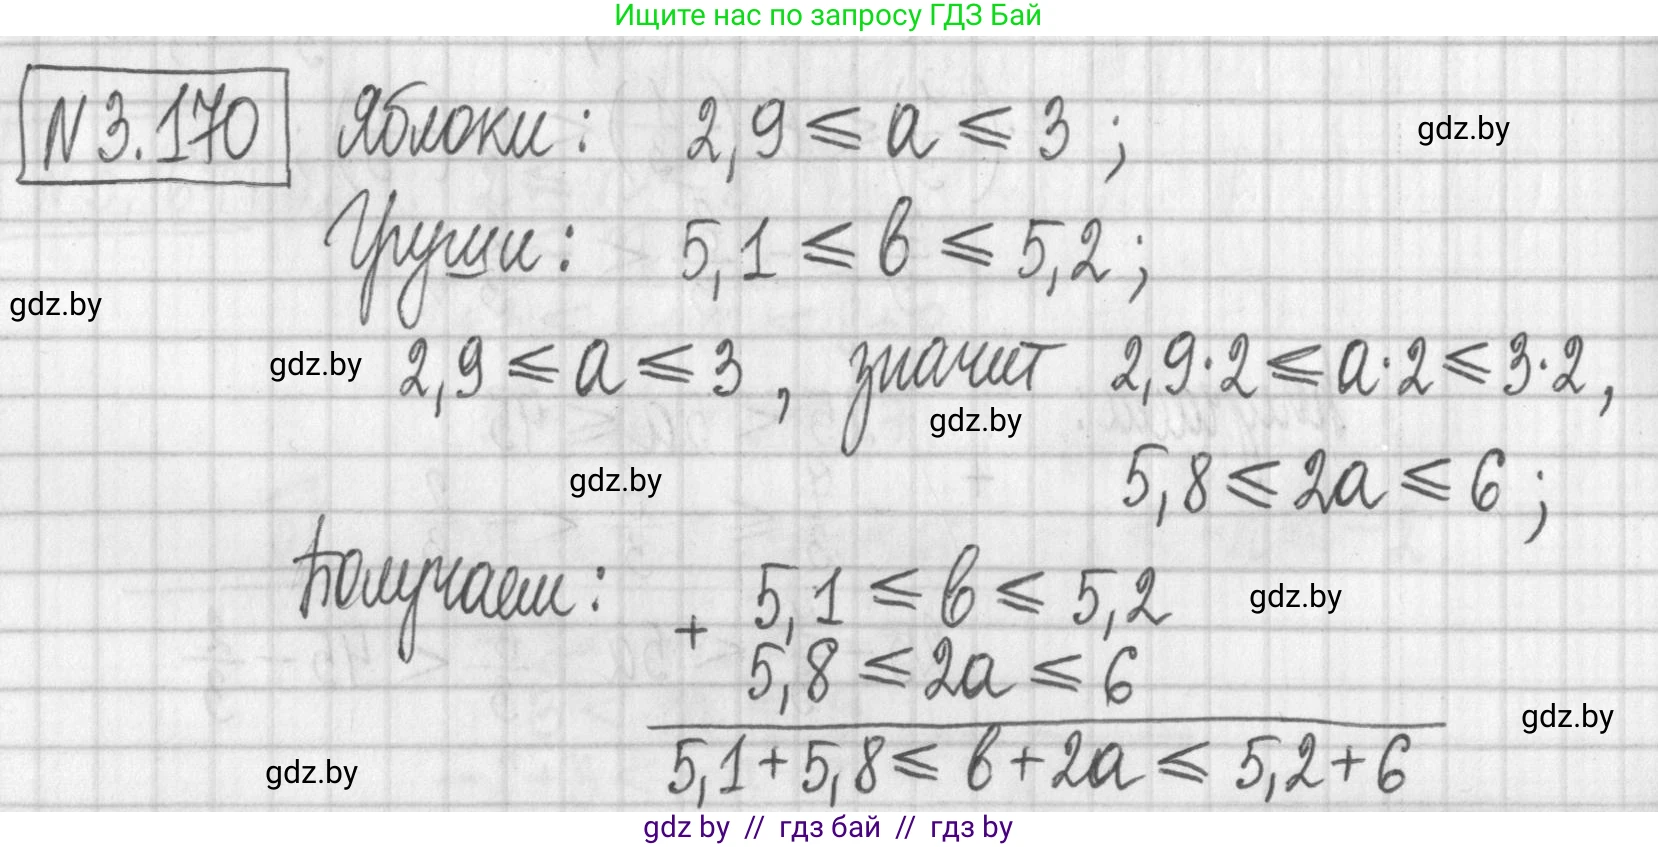 Ищите нас по запросу ГДЗ Бай
N 3.170 Яблоки: 2,9 ⩽ a ⩽ 3 ;
gdz.by
Груши: 5,1 ⩽ в ⩽ 5,2 ;
gdz.by
gdz.by 2,9 ⩽ a ⩽ 3 , значит 2,9·2 ⩽ a·2 ⩽ 3·2 ,
gdz.by
gdz.by 5,8 ⩽ 2a ⩽ 6 ;
Получаем: + 5,1 ⩽ в ⩽ 5,2 gdz.by
5,8 ⩽ 2a ⩽ 6
gdz.by
gdz.by 5,1+5,8 ⩽ в+2a ⩽ 5,2+6
gdz by // гдз бай // гдз by